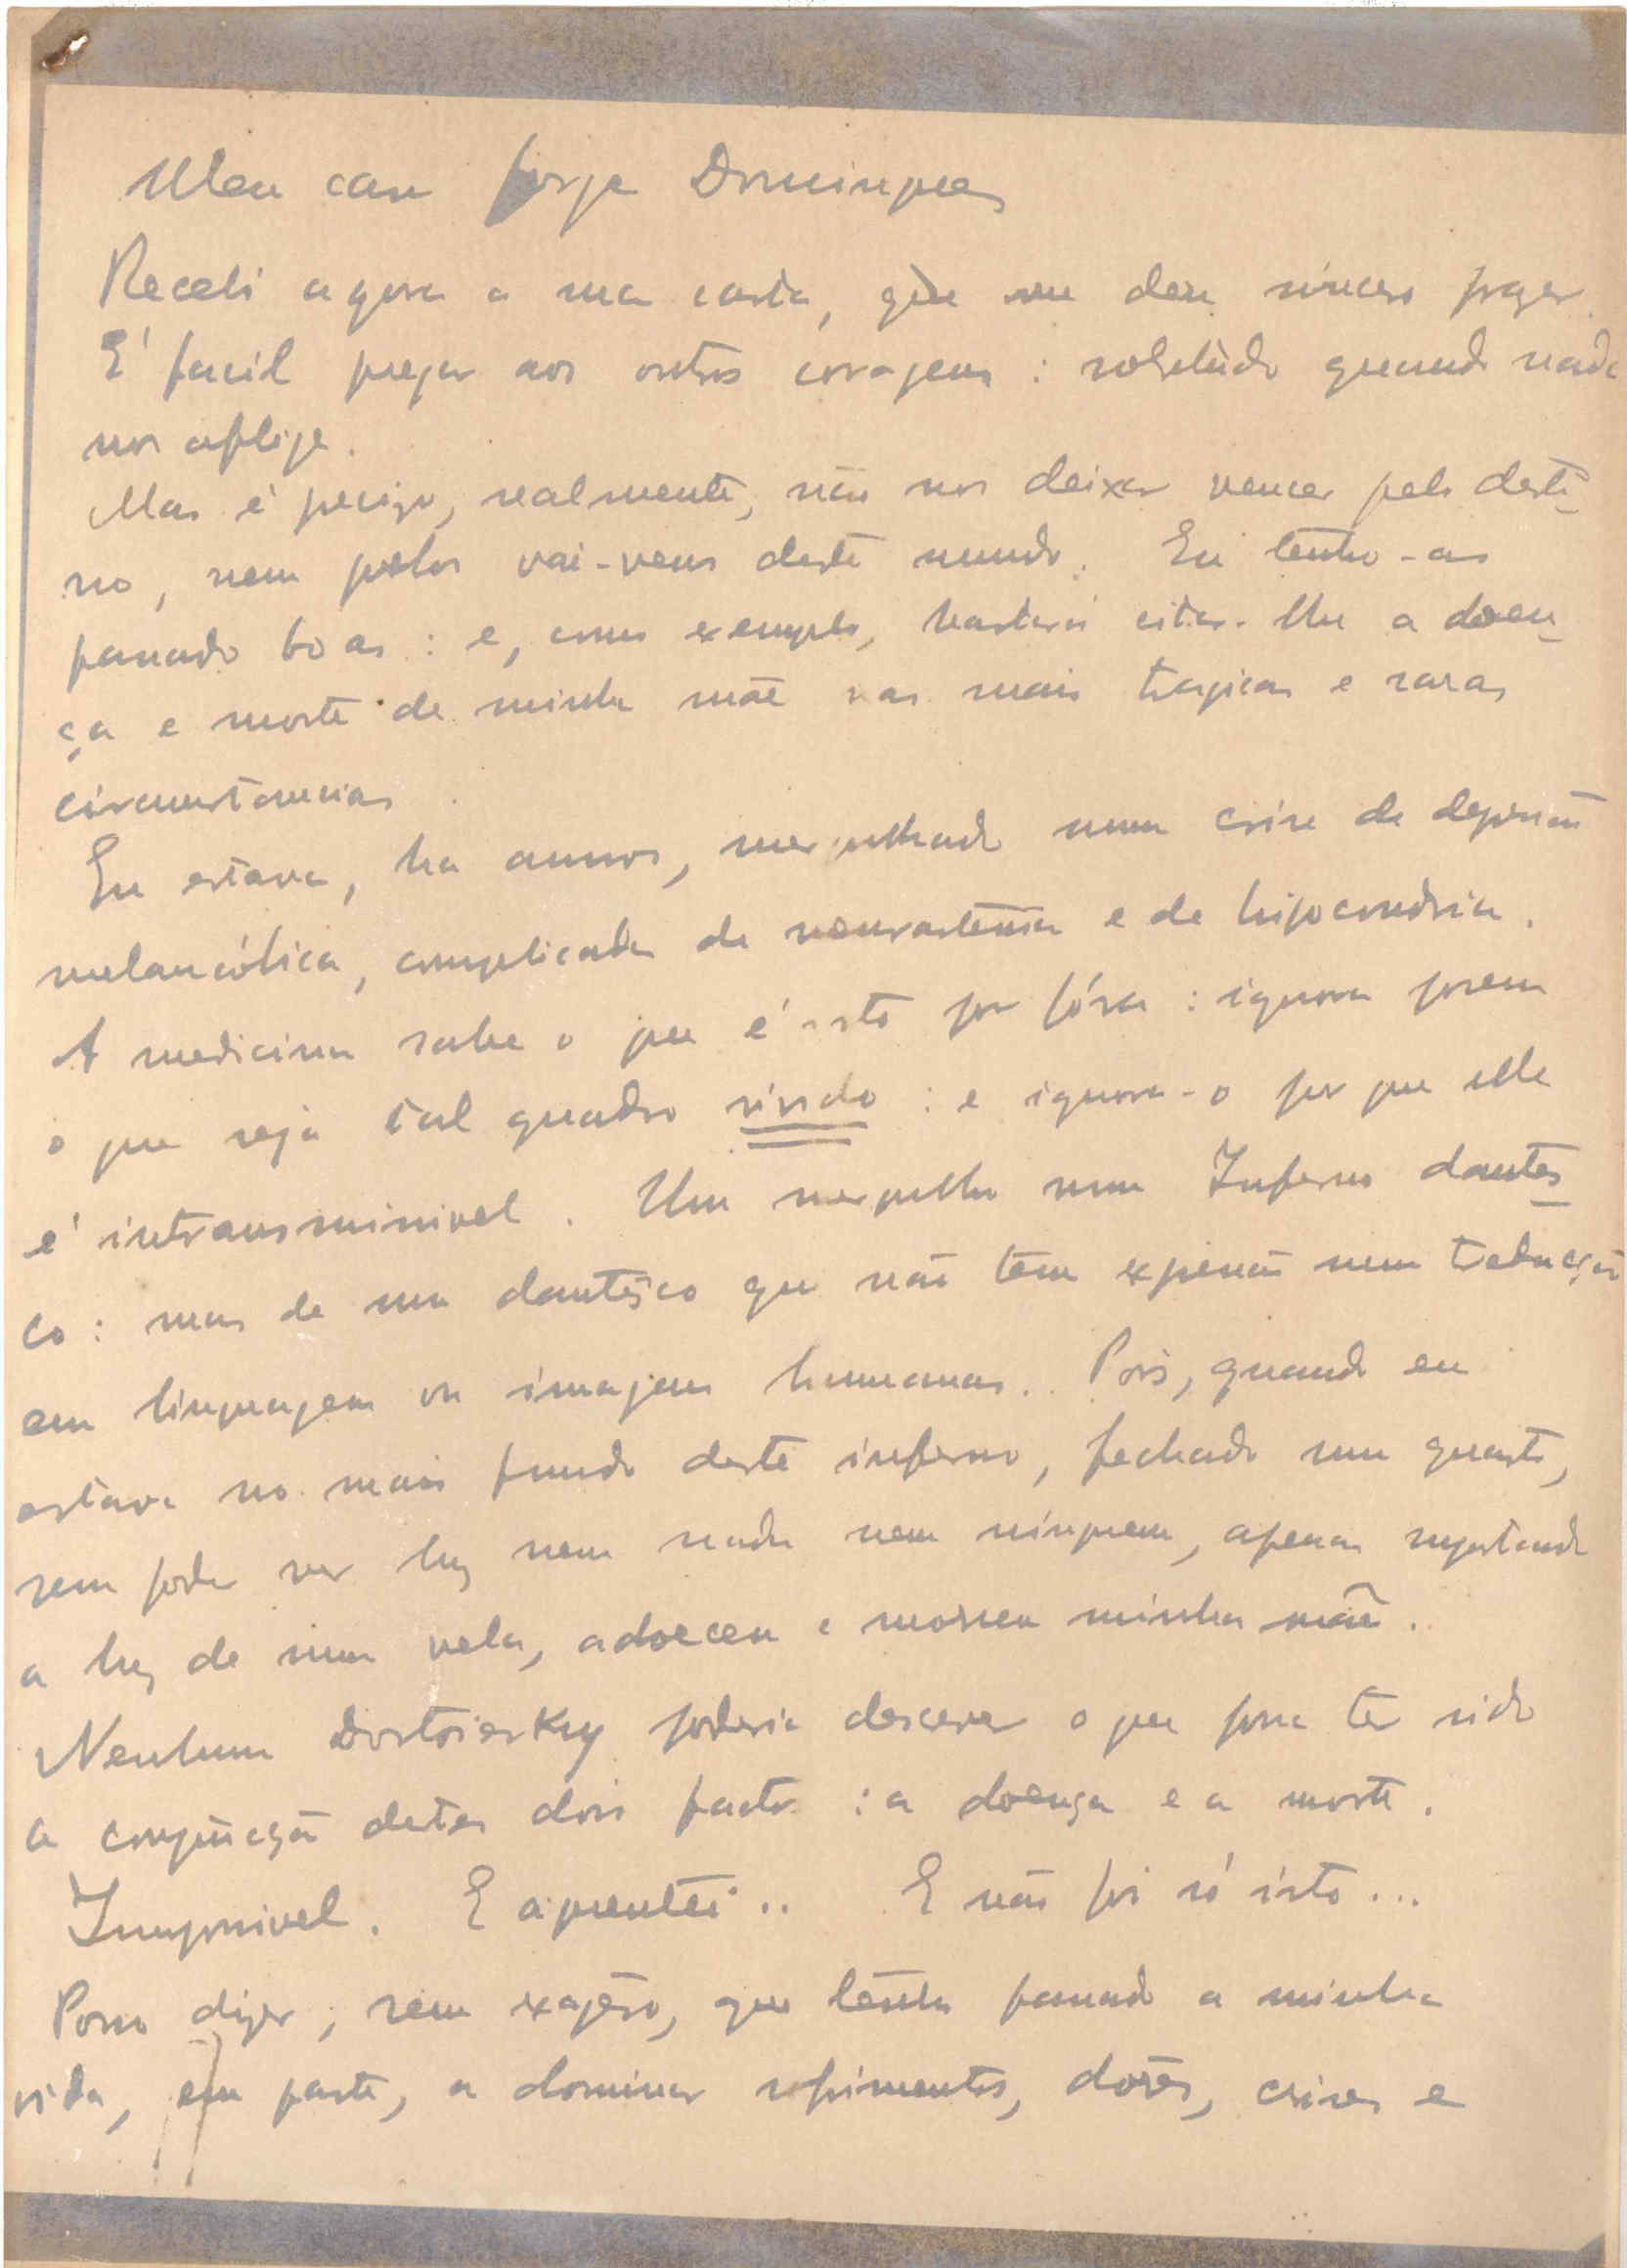 Meu caro Jorge Domingues
Recebi agora a sua carta, que me deu sincero prazer.
É facil pregar aos outros coragem : sobretudo quando nada
nos aflige.
Mas é preciso, realmente, não nos deixar vencer pelo desti-
no, nem pelos vai-vens deste mundo. Eu tenho-as
passado boas : e, como exemplo, bastará citar-lhe a doen-
ça e morte de minha mãe nas mais tragicas e raras
circunstancias.
Eu estava, ha annos, mergulhado numa crise de depressão
melancólica, complicada de neurastenia e de hipocondria.
A medicina sabe o que é isto por fóra : ignora porem
o que seja tal quadro vivido : e ignora-o por que elle
é intransmissivel. Um mergulho num Inferno dantes-
co : mas de um dantesco que não tem expressão nem tradução
em linguagem ou imagens humanas. Pois, quando eu
estava no mais fundo deste inferno, fechado num quarto,
sem poder ver luz nem nada nem ninguem, apenas suportando
a luz de uma vela, adoeceu e morreu minha mãe.
Nenhum Dostoievsky poderia descrever o que possa ter sido
a conjugação destes dois factos : a doença e a morte.
Impossivel. E aguentei.. E não foi só isto...
Posso dizer, sem exagêro, que tenho passado a minha
vida, em parte, a dominar sofrimentos, dôres, crises e